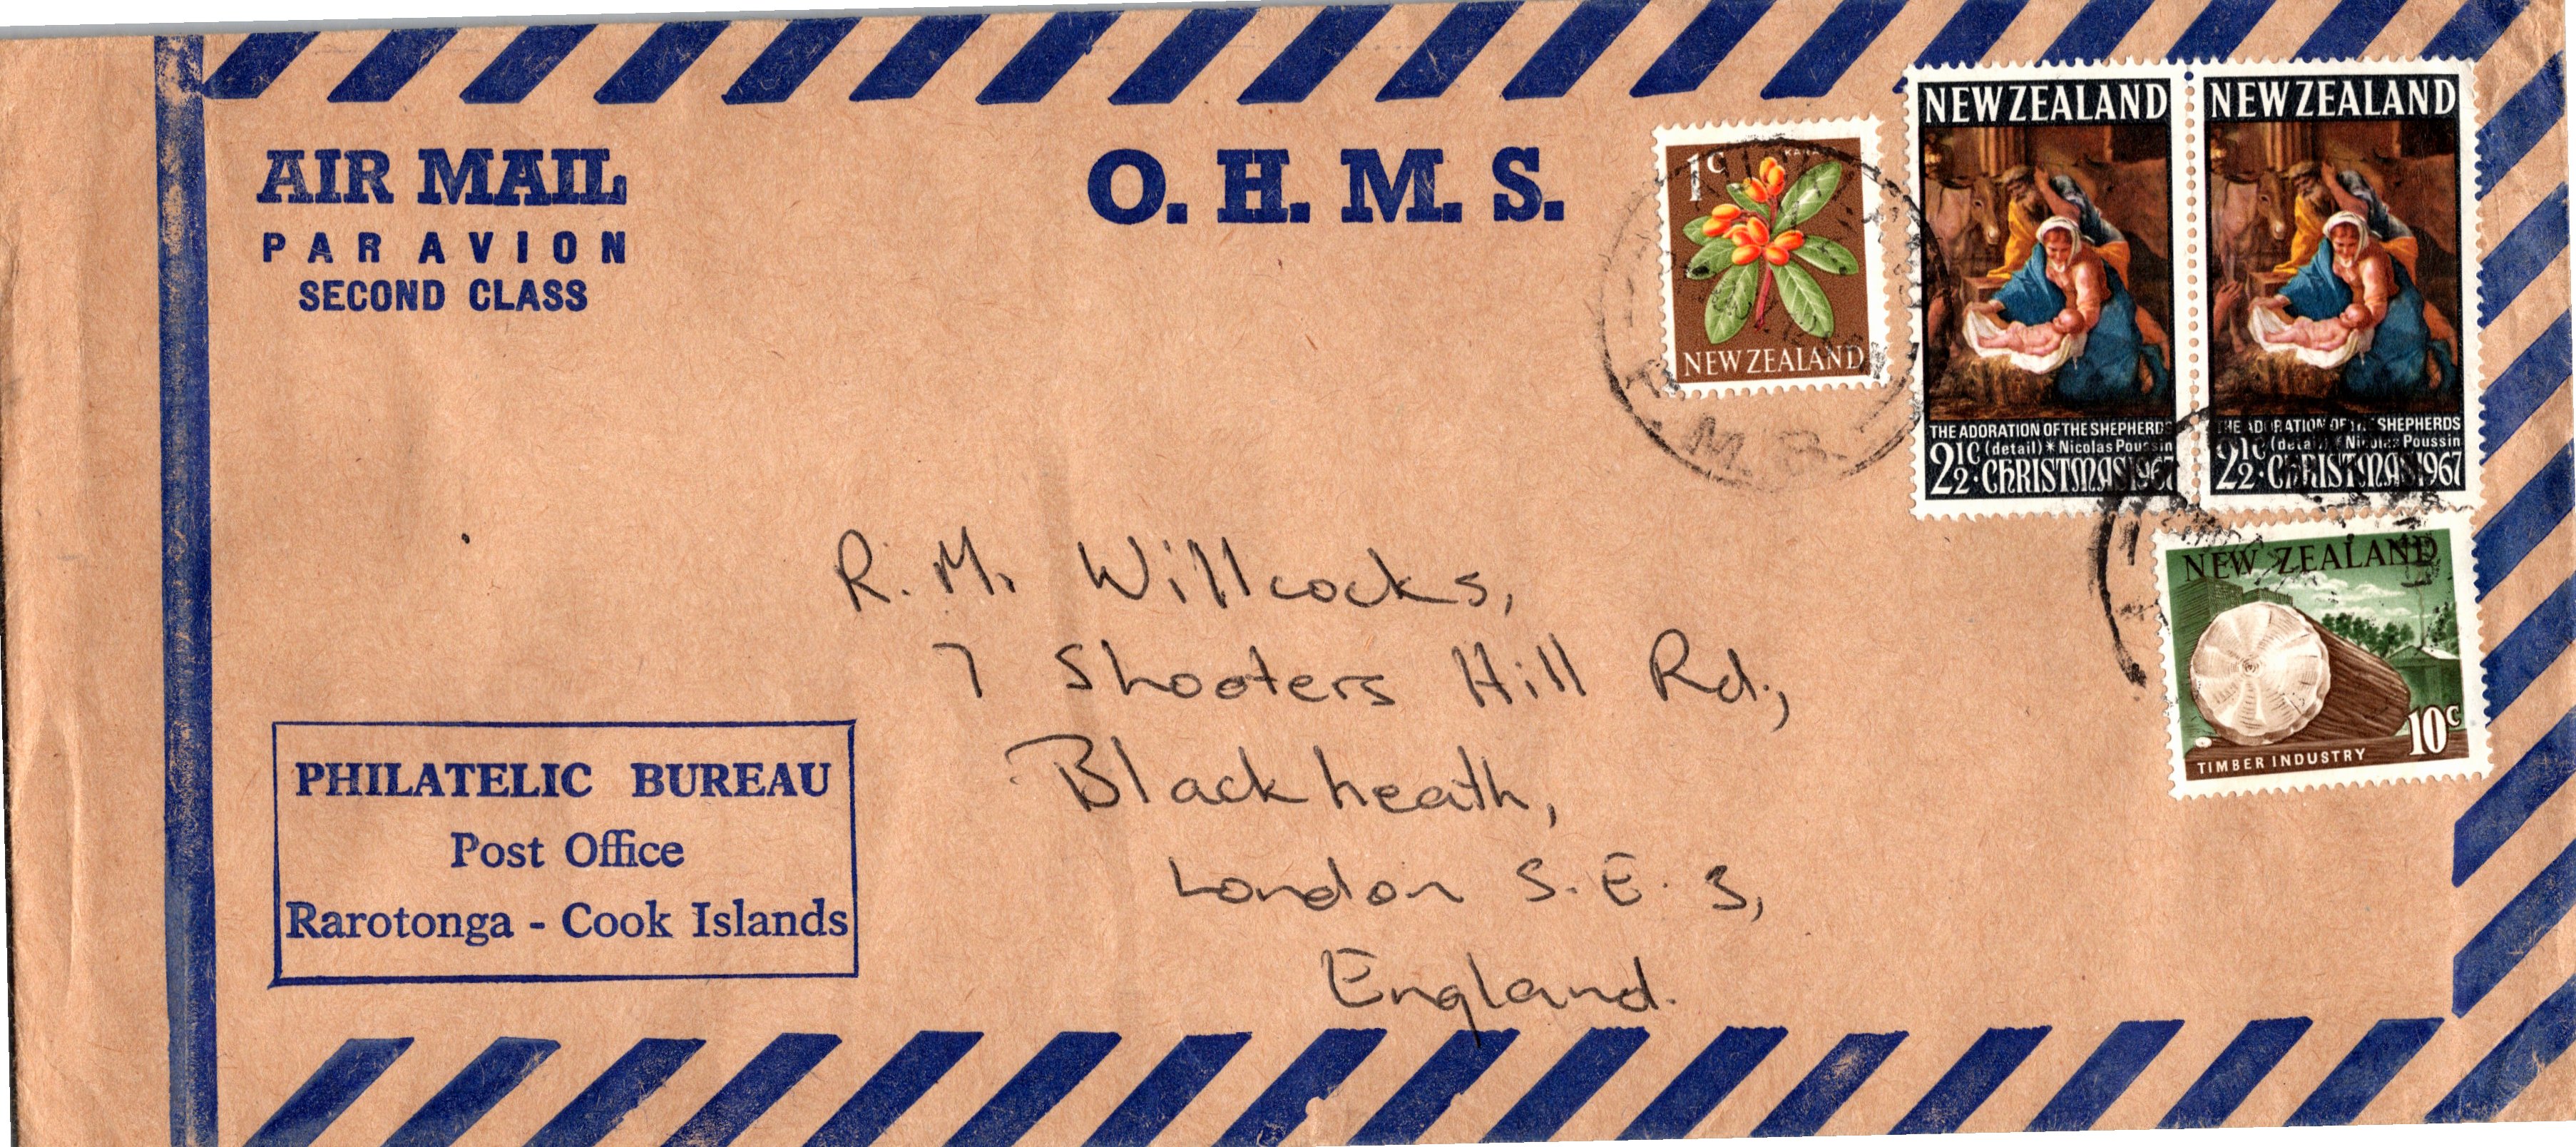 AIR MAIL
PAR AVION
SECOND CLASS
O. H. M. S.
1c
NEW ZEALAND
NEW ZEALAND
THE ADORATION OF THE SHEPHERDS
(detail) * Nicolas Poussin
2½c · CHRISTMAS 1967
NEW ZEALAND
THE ADORATION OF THE SHEPHERDS
(detail) * Nicolas Poussin
2½c · CHRISTMAS 1967
NEW ZEALAND
10c
TIMBER INDUSTRY
R. M. Willcocks,
7 Shooters Hill Rd.,
Blackheath,
London S. E. 3,
England.
PHILATELIC BUREAU
Post Office
Rarotonga - Cook Islands